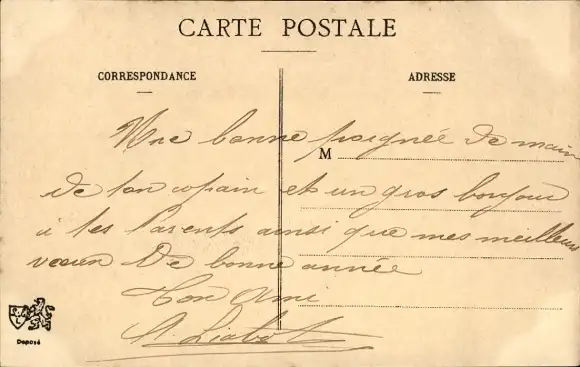 CARTE POSTALE
CORRESPONDANCE
ADRESSE
M
Une bonne poignée de main
de ton copain et un gros bonjour
à tes Parents ainsi que mes meilleurs
vœux de bonne année
Ton Ami
Déposé